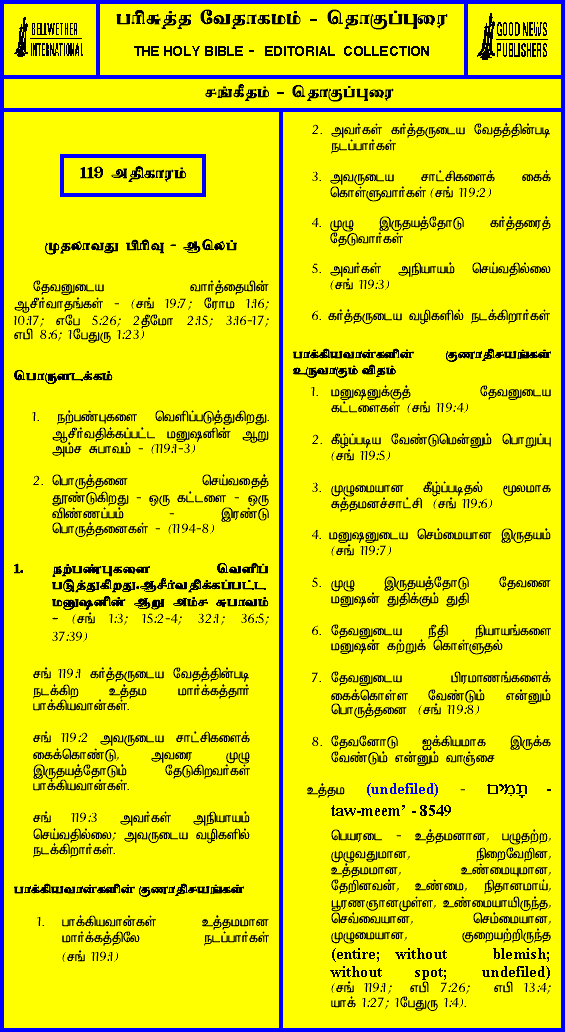 BELLWETHER
INTERNATIONAL
பரிசுத்த வேதாகமம் - தொகுப்புரை
THE HOLY BIBLE - EDITORIAL COLLECTION
GOOD NEWS
PUBLISHERS
சங்கீதம் - தொகுப்புரை
119 அதிகாரம்
முதலாவது பிரிவு - ஆலெப்
தேவனுடைய வார்த்தையின்
ஆசீர்வாதங்கள் - (சங் 19:7; ரோம 1:16;
10:17; எபே 5:26; 2தீமோ 2:15; 3:16-17;
எபி 8:6; 1பேதுரு 1:23)
பொருளடக்கம்
1. நற்பண்புகளை வெளிப்படுத்துகிறது.
ஆசீர்வதிக்கப்பட்ட மனுஷனின் ஆறு
அம்ச சுபாவம் - (119:1-3)
2. பொருத்தனை செய்வதைத்
தூண்டுகிறது - ஒரு கட்டளை - ஒரு
விண்ணப்பம் - இரண்டு
பொருத்தனைகள் - (119:4-8)
1. நற்பண்புகளை வெளிப்
படுத்துகிறது.ஆசீர்வதிக்கப்பட்ட
மனுஷனின் ஆறு அம்ச சுபாவம்
- (சங் 1:3; 15:2-4; 32:1; 36:5;
37:39)
சங் 119:1 கர்த்தருடைய வேதத்தின்படி
நடக்கிற உத்தம மார்க்கத்தார்
பாக்கியவான்கள்.
சங் 119:2 அவருடைய சாட்சிகளைக்
கைக்கொண்டு, அவரை முழு
இருதயத்தோடும் தேடுகிறவர்கள்
பாக்கியவான்கள்.
சங் 119:3 அவர்கள் அநியாயம்
செய்வதில்லை; அவருடைய வழிகளில்
நடக்கிறார்கள்.
பாக்கியவான்களின் குணாதிசயங்கள்
1. பாக்கியவான்கள் உத்தமமான
மார்க்கத்திலே நடப்பார்கள்
(சங் 119:1)
2. அவர்கள் கர்த்தருடைய வேதத்தின்படி
நடப்பார்கள்
3. அவருடைய சாட்சிகளைக் கைக்
கொள்ளுவார்கள் (சங் 119:2)
4. முழு இருதயத்தோடு கர்த்தரைத்
தேடுவார்கள்
5. அவர்கள் அநியாயம் செய்வதில்லை
(சங் 119:3)
6. கர்த்தருடைய வழிகளில் நடக்கிறார்கள்
பாக்கியவான்களின் குணாதிசயங்கள்
உருவாகும் விதம்
1. மனுஷனுக்குத் தேவனுடைய
கட்டளைகள் (சங் 119:4)
2. கீழ்ப்படிய வேண்டுமென்னும் பொறுப்பு
(சங் 119:5)
3. முழுமையான கீழ்ப்படிதல் மூலமாக
சுத்தமனச்சாட்சி (சங் 119:6)
4. மனுஷனுடைய செம்மையான இருதயம்
(சங் 119:7)
5. முழு இருதயத்தோடு தேவனை
மனுஷன் துதிக்கும் துதி
6. தேவனுடைய நீதி நியாயங்களை
மனுஷன் கற்றுக் கொள்ளுதல்
7. தேவனுடைய பிரமாணங்களைக்
கைக்கொள்ள வேண்டும் என்னும்
பொருத்தனை (சங் 119:8)
8. தேவனோடு ஐக்கியமாக இருக்க
வேண்டும் என்னும் வாஞ்சை
உத்தம (undefiled) - תָּמִים -
taw-meem’ - 8549
பெயரடை - உத்தமனான, பழுதற்ற,
முழுவதுமான, நிறைவேறின,
உத்தமமான, உண்மையுமான,
தேறினவன், உண்மை, நிதானமாய்,
பூரணஞானமுள்ள, உண்மையாயிருந்த,
செவ்வையான, செம்மையான,
முழுமையான, குறையற்றிருந்த
(entire; without blemish;
without spot; undefiled)
(சங் 119:1; எபி 7:26; எபி 13:4;
யாக் 1:27; 1பேதுரு 1:4).